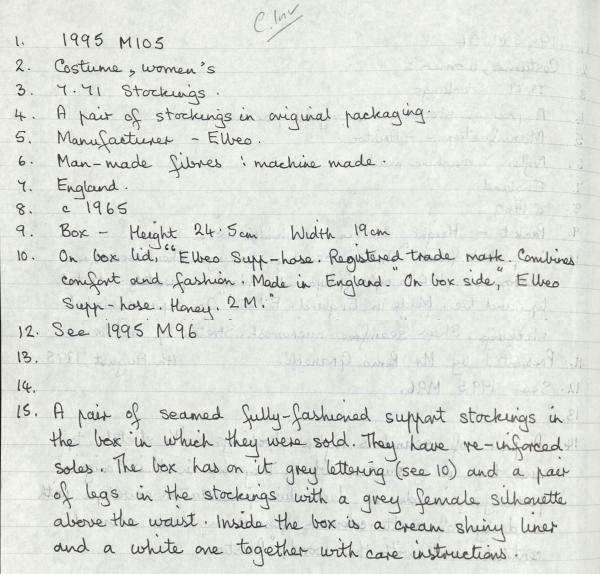 C. Inv
1. 1995 M105
2. Costume, women's
3. 7.71 Stockings.
4. A pair of stockings in original packaging.
5. Manufacturer - Elbeo.
6. Man-made fibres : machine made.
7. England.
8. c 1965
9. Box - Height 24.5cm Width 19cm
10. On box lid, "Elbeo Supp-hose. Registered trade mark. Combines
comfort and fashion. Made in England." On box side, "Elbeo
Supp-hose. Honey. 2M."
12. See 1995 M96
13.
14.
15. A pair of seamed fully-fashioned support stockings in
the box in which they were sold. They have re-inforced
soles. The box has on it grey lettering (see 10) and a pair
of legs in the stockings with a grey female silhouette
above the waist. Inside the box is a cream shiny liner
and a white one together with care instructions.